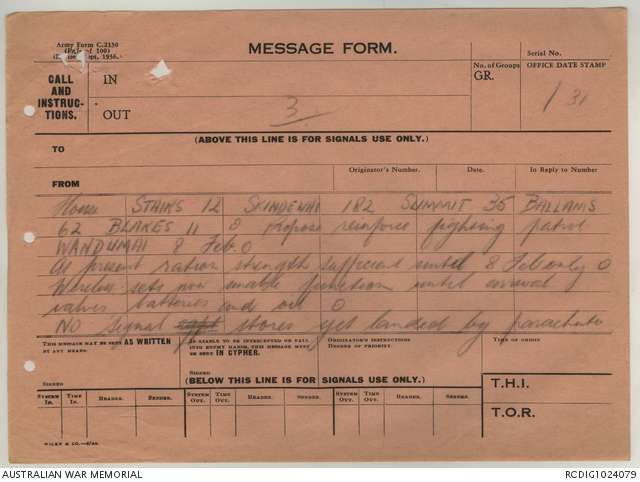 Army Form C.2130
(Pads of 100)
Sept, 1936.
MESSAGE FORM.
Serial No.
CALL AND INSTRUC-TIONS.
IN
OUT
3
No. of Groups
GR.
OFFICE DATE STAMP
1 31
(ABOVE THIS LINE IS FOR SIGNALS USE ONLY.)
TO
FROM
Originator's Number.
Date.
In Reply to Number.
STAIRS 12 SKINDEWAI 182 SUMMIT 35 BALLAMS
62 BLAKES 11 0 Propose reinforce fighting patrol
WANDUMAI 8 Feb 0
At present ration strength sufficient until 8 Feb only 0
Wireless sets now unable function until arrival
valves batteries and oil 0
NO signal eqpt stores yet landed by parachute
THIS MESSAGE MAY BE SENT AS WRITTEN BY ANY MEANS.
IF LIABLE TO BE INTERCEPTED OR FALL INTO ENEMY HANDS, THIS MESSAGE MUST BE SENT IN CYPHER.
ORIGINATOR'S INSTRUCTIONS
DEGREE OF PRIORITY.
TIME OF ORIGIN
SIGNED
SIGNED
(BELOW THIS LINE IS FOR SIGNALS USE ONLY.)
T.H.I.
SYSTEM IN. TIME IN. READER. SENDER. SYSTEM OUT. TIME OUT. READER. SENDER. SYSTEM OUT. TIME OUT. READER. SENDER.
T.O.R.
AUSTRALIAN WAR MEMORIAL
RCDIG1024079